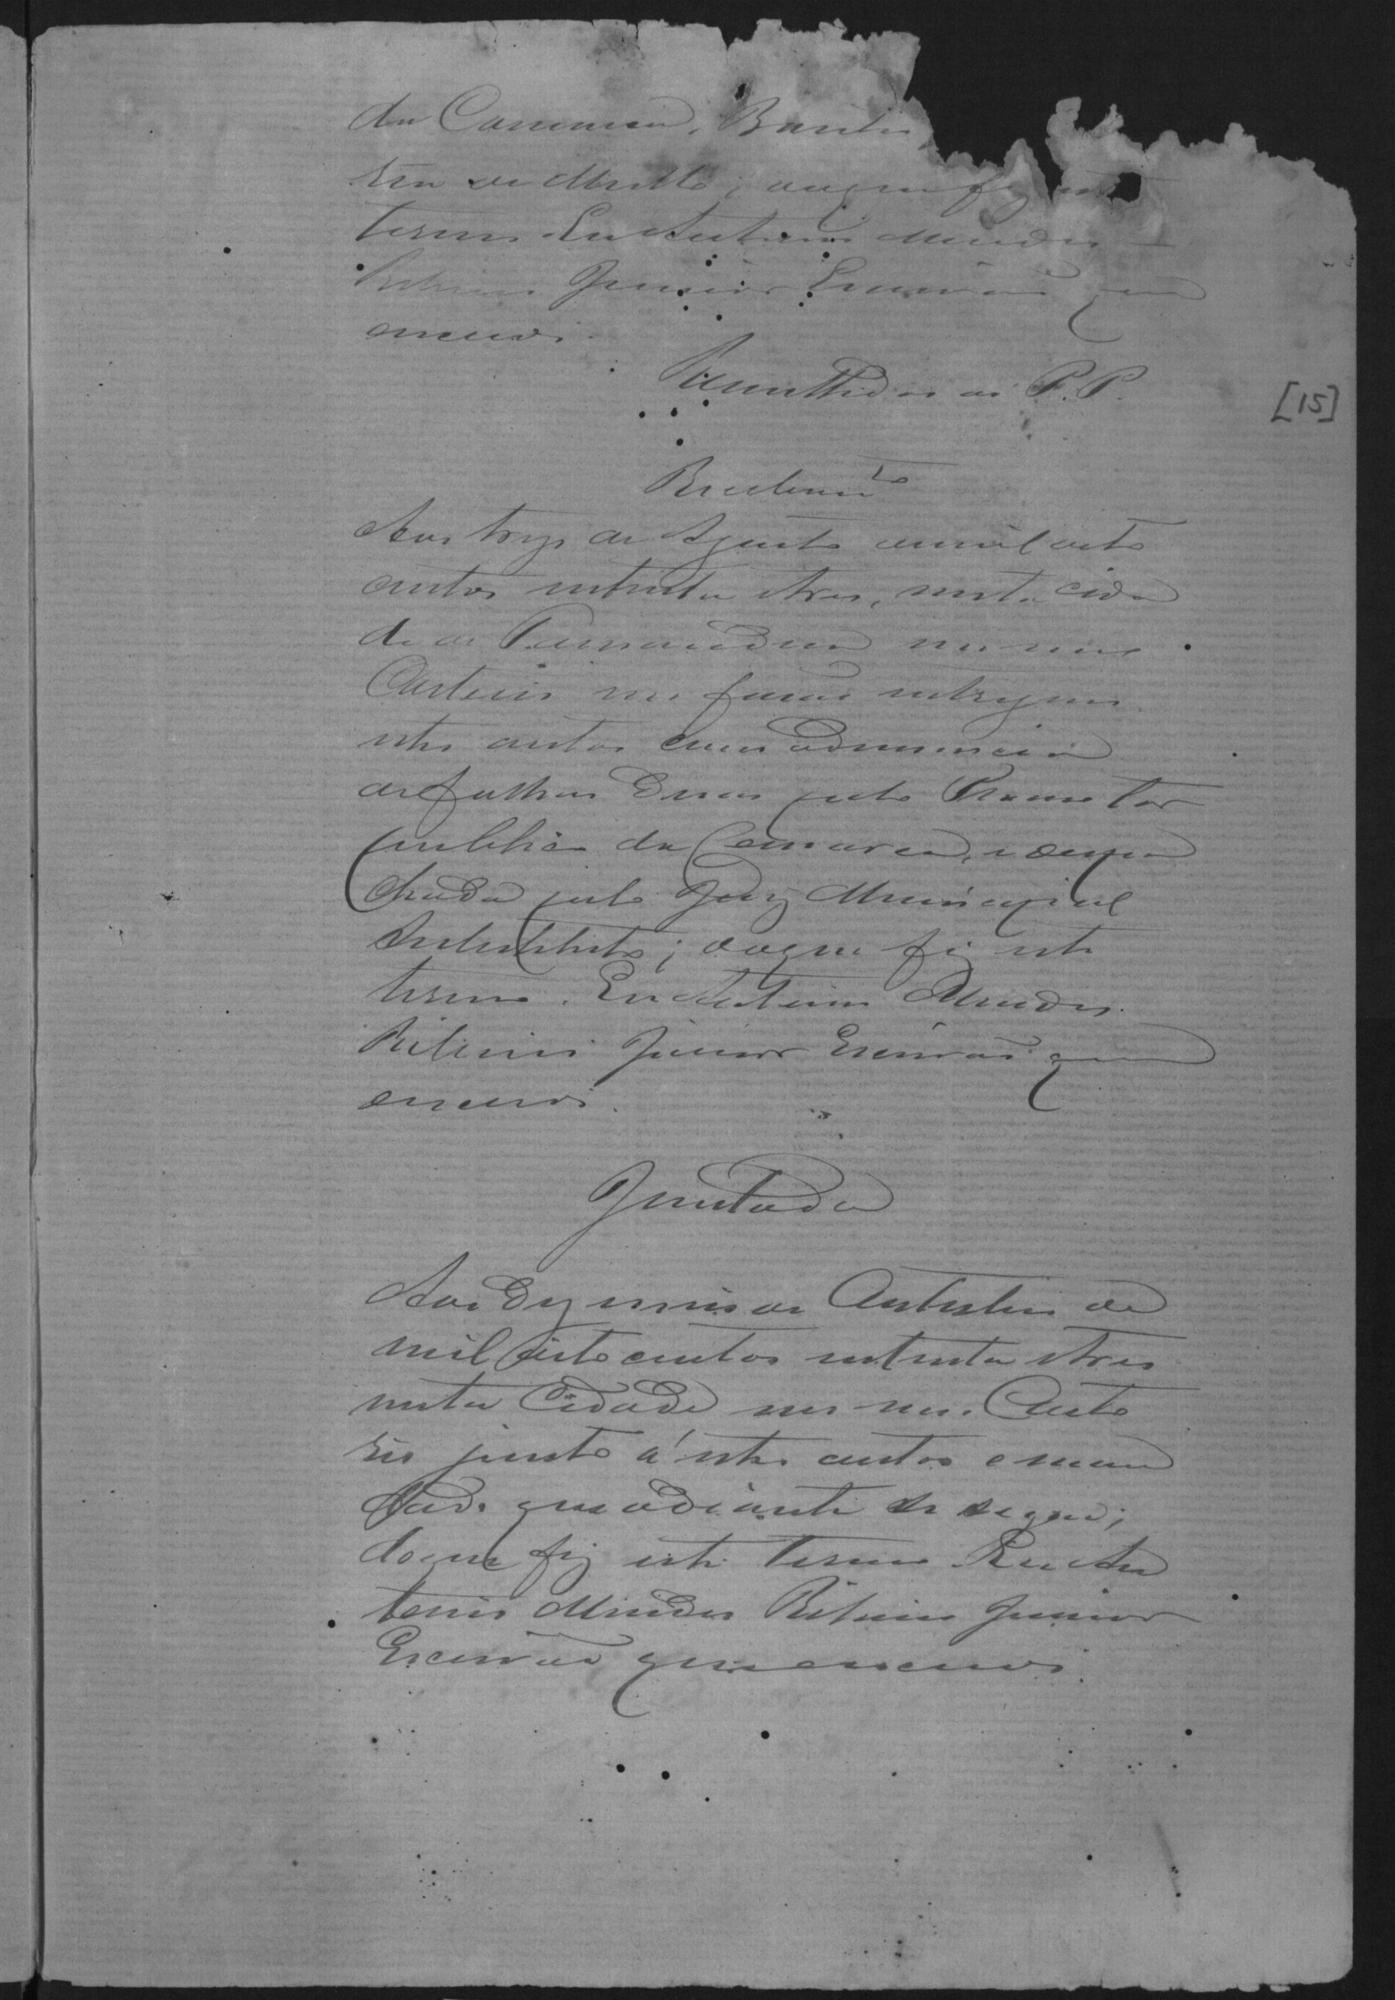 da Comarca, Bento
de Mello; doque fiz este
termo. Eu Antonio Mendes
Ribeiro Junior Escrivão que
escrevi.
Remettidos ao P. P.
[15]
Recebim.to
Aos trez de Agosto de mil oito
centos setenta etres, nesta cida
de de em meo
Cartorio me forão entregues
estes autos com adenuncia
defolhas duas pelo Promotor
publico da Comarca, e despa
chada pelo Juiz Municipal
Substituto; doque fiz este
termo. Eu Antonio Mendes
Ribeiro Junior Escrivão que
escrevi.
Juntada
Aos de de
mil oito centos setenta etres
nesta Cidade em meo Carto
rio junto á estes autos o man
dado que adiante se segue;
doque fiz este termo. Eu An
tonio Mendes Ribeiro Junior
Escrivão que escrevi.